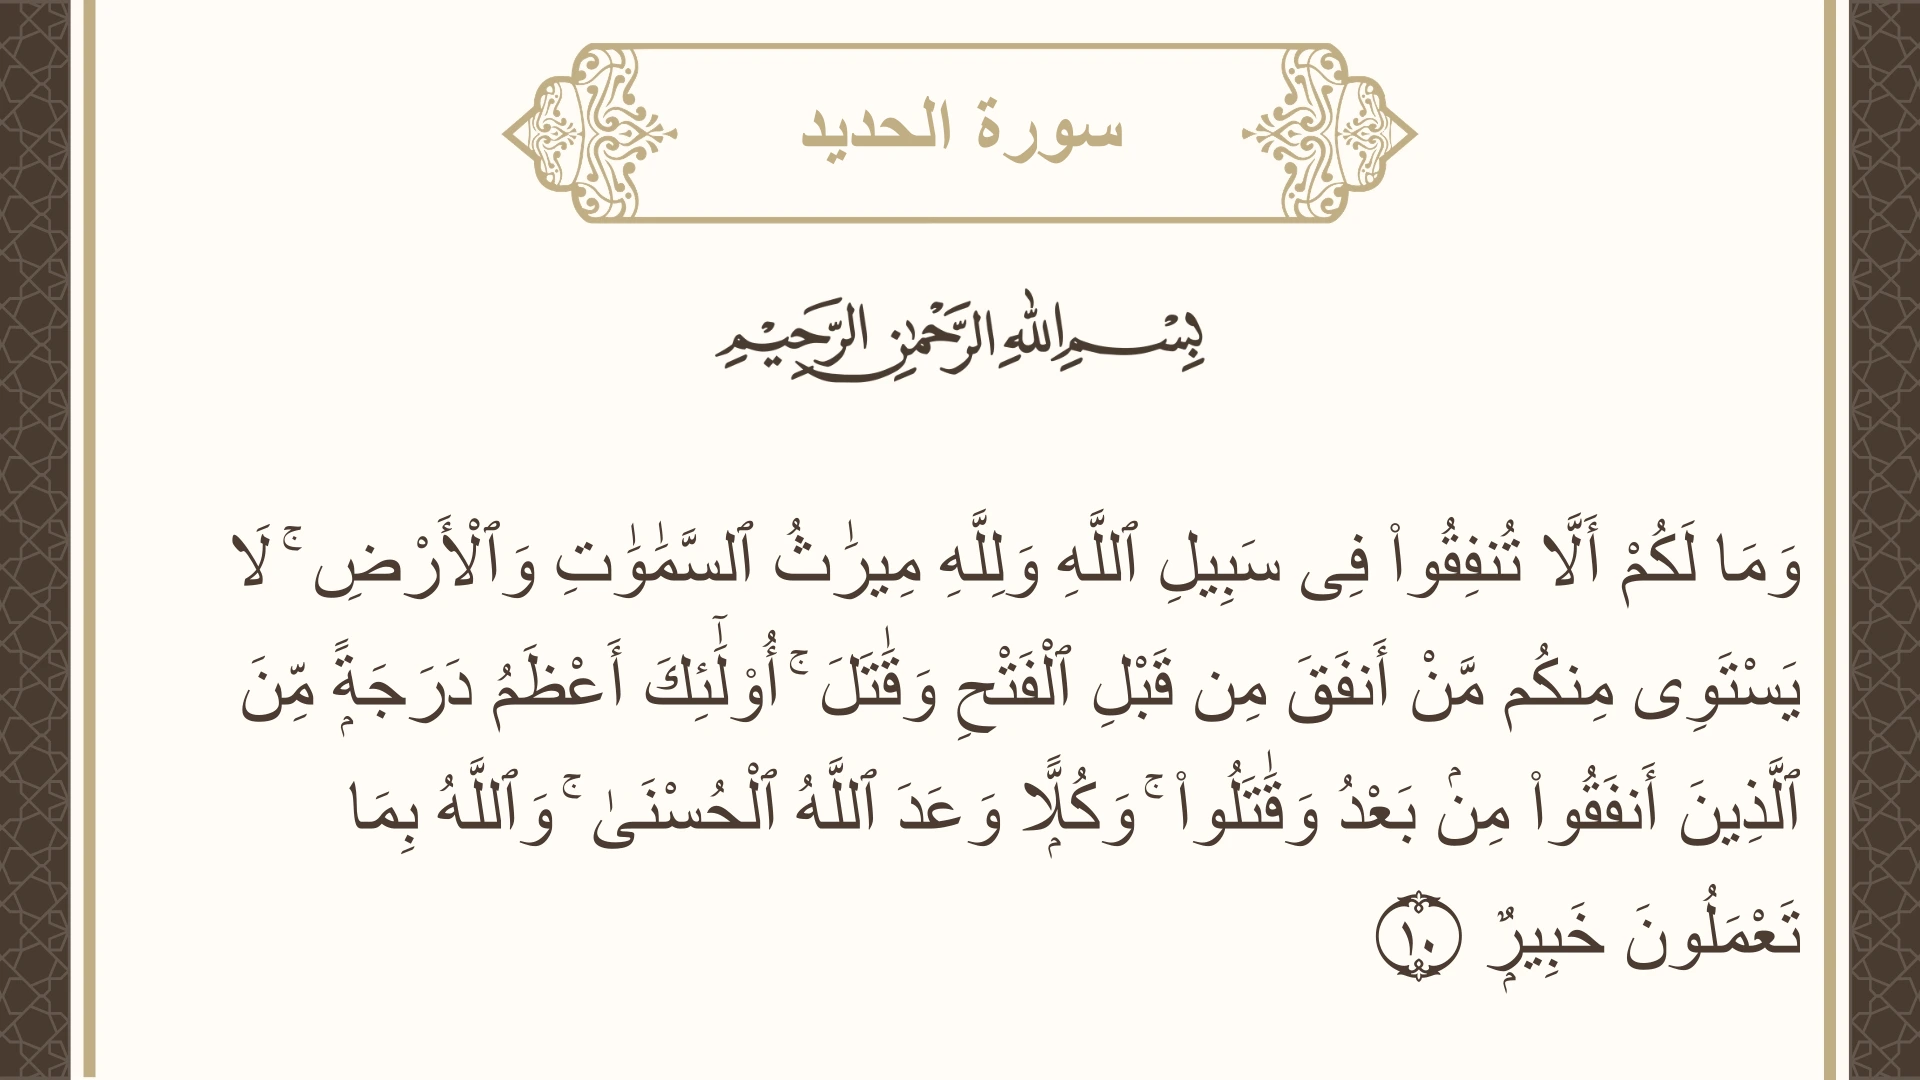 سورة الحديد
بِسْمِ اللهِ الرَّحْمٰنِ الرَّحِيْمِ
وَمَا لَكُمْ أَلَّا تُنفِقُوا۟ فِى سَبِيلِ ٱللَّهِ وَلِلَّهِ مِيرَٰثُ ٱلسَّمَٰوَٰتِ وَٱلْأَرْضِ ۚ لَا
يَسْتَوِى مِنكُم مَّنْ أَنفَقَ مِن قَبْلِ ٱلْفَتْحِ وَقَٰتَلَ ۚ أُو۟لَٰٓئِكَ أَعْظَمُ دَرَجَةًۭ مِّنَ
ٱلَّذِينَ أَنفَقُوا۟ مِنۢ بَعْدُ وَقَٰتَلُوا۟ ۚ وَكُلًّۭا وَعَدَ ٱللَّهُ ٱلْحُسْنَىٰ ۚ وَٱللَّهُ بِمَا
تَعْمَلُونَ خَبِيرٌۭ ١٠